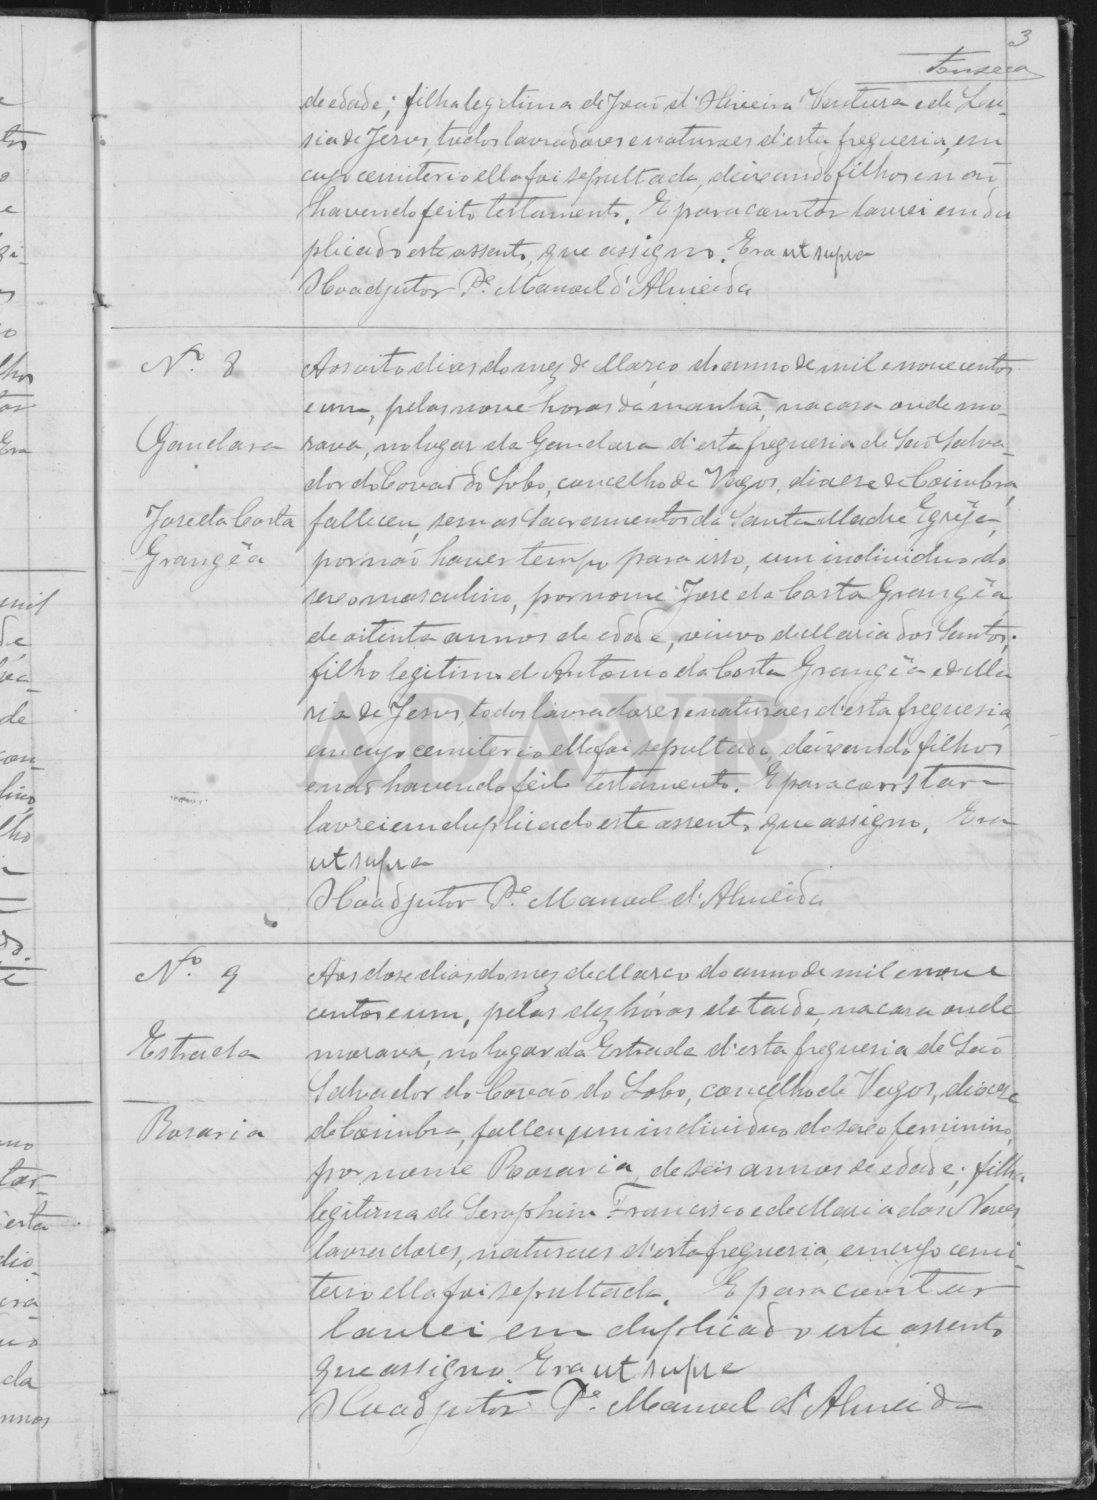 3
Fonseca
de edade; filha legitima de João d'Oliveira Ventura e de Lu-
sia de Jesus, todos lavradores e naturaes d'esta freguesia, em
cujo cemiterio ella foi sepultada, deixando filhos e não
havendo feito testamento. E para constar lavrei em du
plicado este assento, que assigno. Era ut supra
O Coadjutor P.e Manoel d'Almeida
N.o 8
Gandara
José da Costa
Grangêa
Aos oito dias do mez de Março do anno de mil e novecentos
e um, pelas nove horas da manhã, na casa onde mo-
rava, no lugar da Gandara d'esta freguesia de São Salva-
dor do Covão do Lobo, concelho de Vagos, diocese de Coimbra,
falleceu, sem os Sacramentos da Santa Madre Egreja,
por não haver tempo para isso, um individuo do
sexo masculino, por nome José da Costa Grangêa,
de oitenta annos de edade, viuvo de Maria dos Santos;
filho legitimo de Antonio da Costa Grangêa e de Ma
ria de Jesus, todos lavradores e naturaes d'esta freguesia,
em cujo cemiterio elle foi sepultado, deixando filhos
e não havendo feito testamento. E para constar
lavrei em duplicado este assento que assigno. Era
ut supra
O Coadjutor P.e Manoel d'Almeida
N.o 9
Estrada
Rosaria
Aos dose dias do mez de Março do anno de mil e nove
centos e um, pelas dez horas da tarde, na casa onde
morava, no lugar da Estrada d'esta freguesia de São
Salvador do Covão do Lobo, concelho de Vagos, diocese
de Coimbra, falleceu um individuo do sexo feminino,
por nome Rosaria, de seis annos de edade; filha
legitima de Seraphim Francisco e de Maria das Neves,
lavradores, naturaes d'esta freguesia, em cujo cemi-
terio ella foi sepultada. E para constar
lavrei em duplicado este assento
que assigno. Era ut supra
O Coadjutor P.e Manoel d'Almeida
ADAVR